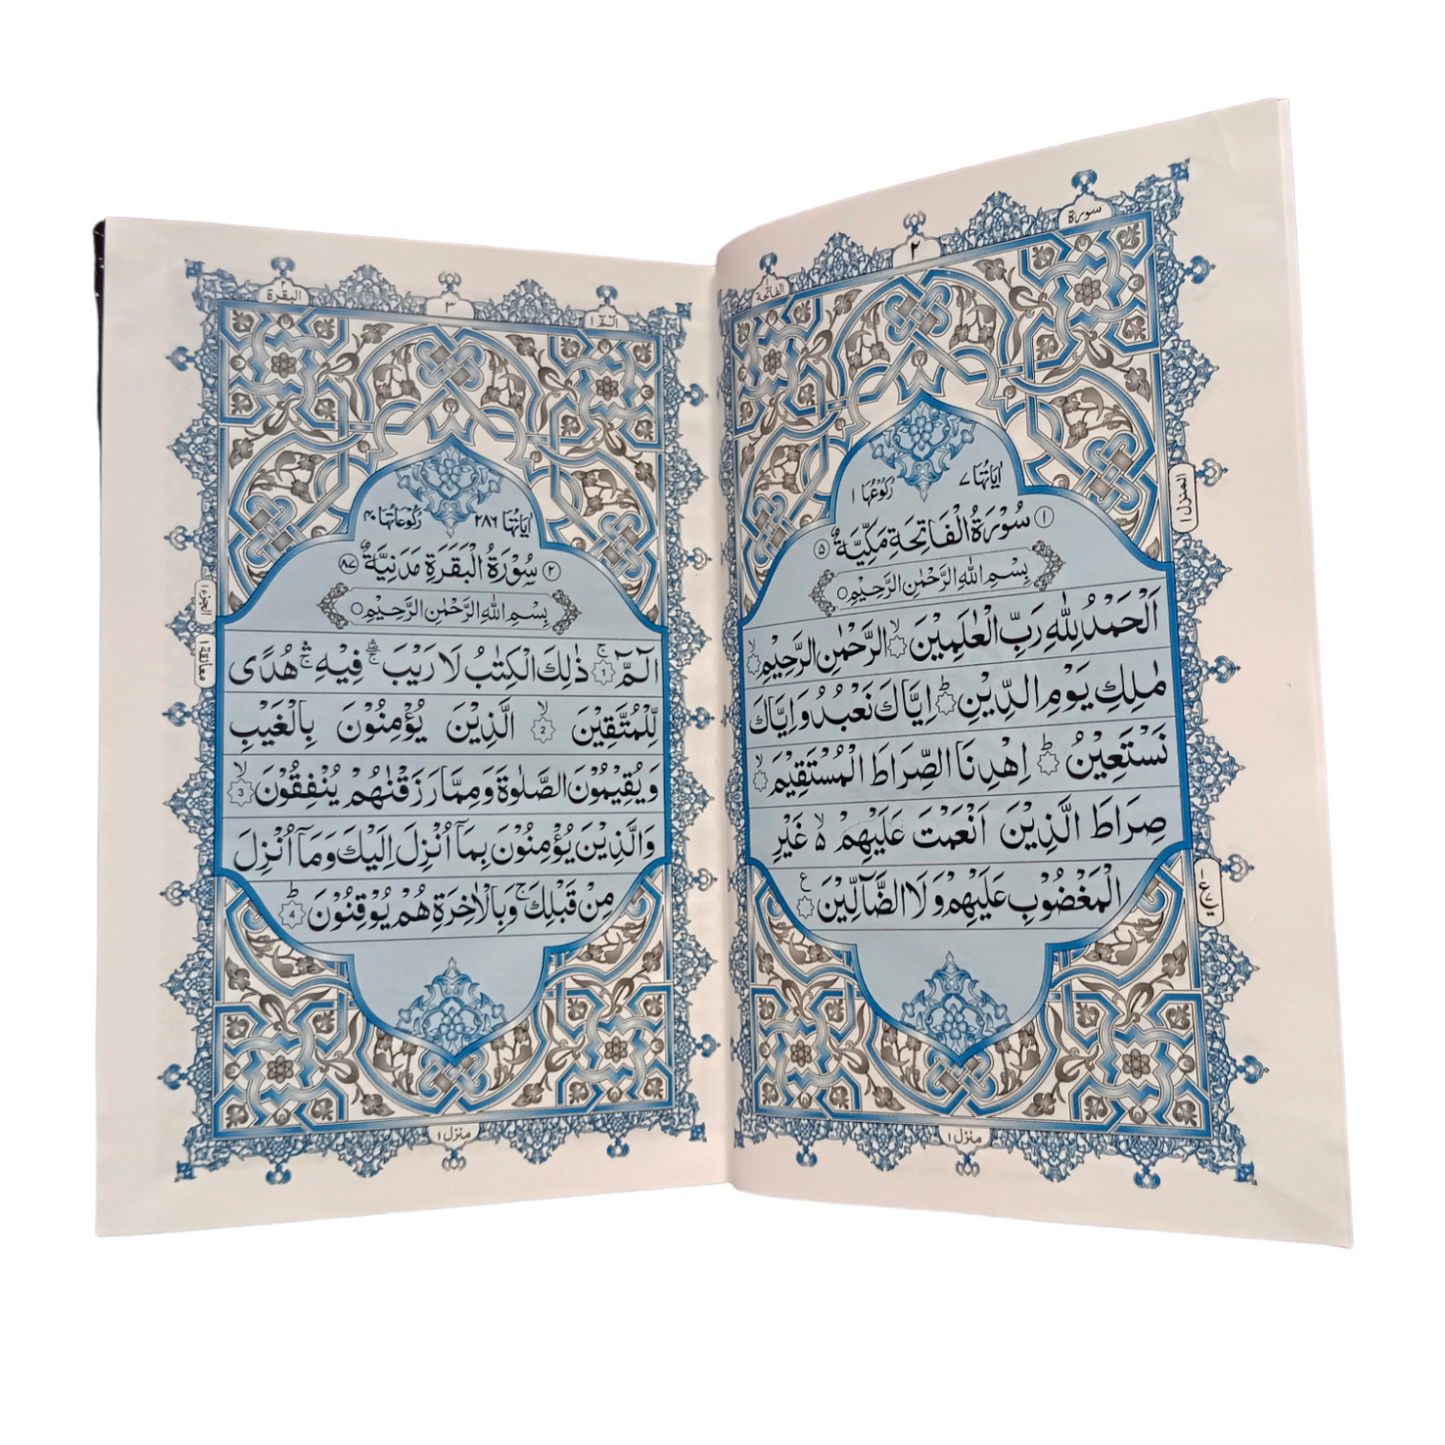 سورة
٢
الفاتحة
اٰيَاتُهَا ٧
رُكُوْعُهَا ١
١ سُوْرَةُ الْفَاتِحَةِ مَكِّيَّةٌ ٥
بِسْمِ اللهِ الرَّحْمٰنِ الرَّحِيْمِ
اَلْحَمْدُ لِلّٰهِ رَبِّ الْعٰلَمِيْنَ ۙ الرَّحْمٰنِ الرَّحِيْمِ ۙ
مٰلِكِ يَوْمِ الدِّيْنِ ؕ اِيَّاكَ نَعْبُدُ وَاِيَّاكَ
نَسْتَعِيْنُ ؕ اِهْدِنَا الصِّرَاطَ الْمُسْتَقِيْمَ ۙ
صِرَاطَ الَّذِيْنَ اَنْعَمْتَ عَلَيْهِمْ ۙ۬ غَيْرِ
الْمَغْضُوْبِ عَلَيْهِمْ وَلَا الضَّآلِّيْنَ ۧ
المنزل ١
منزل ١
البقرة ٢
٣
الٓمّٓ ١
اٰيَاتُهَا ٢٨٦
رُكُوْعَاتُهَا ٤٠
٢ سُوْرَةُ الْبَقَرَةِ مَدَنِيَّةٌ ٨٧
بِسْمِ اللهِ الرَّحْمٰنِ الرَّحِيْمِ
الٓمّٓ ۚ ١ ذٰلِكَ الْكِتٰبُ لَا رَيْبَ ۛۖۚ فِيْهِ ۛۚ هُدًى
لِّلْمُتَّقِيْنَ ۙ 2 الَّذِيْنَ يُؤْمِنُوْنَ بِالْغَيْبِ
وَيُقِيْمُوْنَ الصَّلٰوةَ وَمِمَّا رَزَقْنٰهُمْ يُنْفِقُوْنَ ۙ 3
وَالَّذِيْنَ يُؤْمِنُوْنَ بِمَآ اُنْزِلَ اِلَيْكَ وَمَآ اُنْزِلَ
مِنْ قَبْلِكَ ۚ وَبِالْاٰخِرَةِ هُمْ يُوْقِنُوْنَ ؕ 4
الجزء ١
معانقة ١
منزل ١